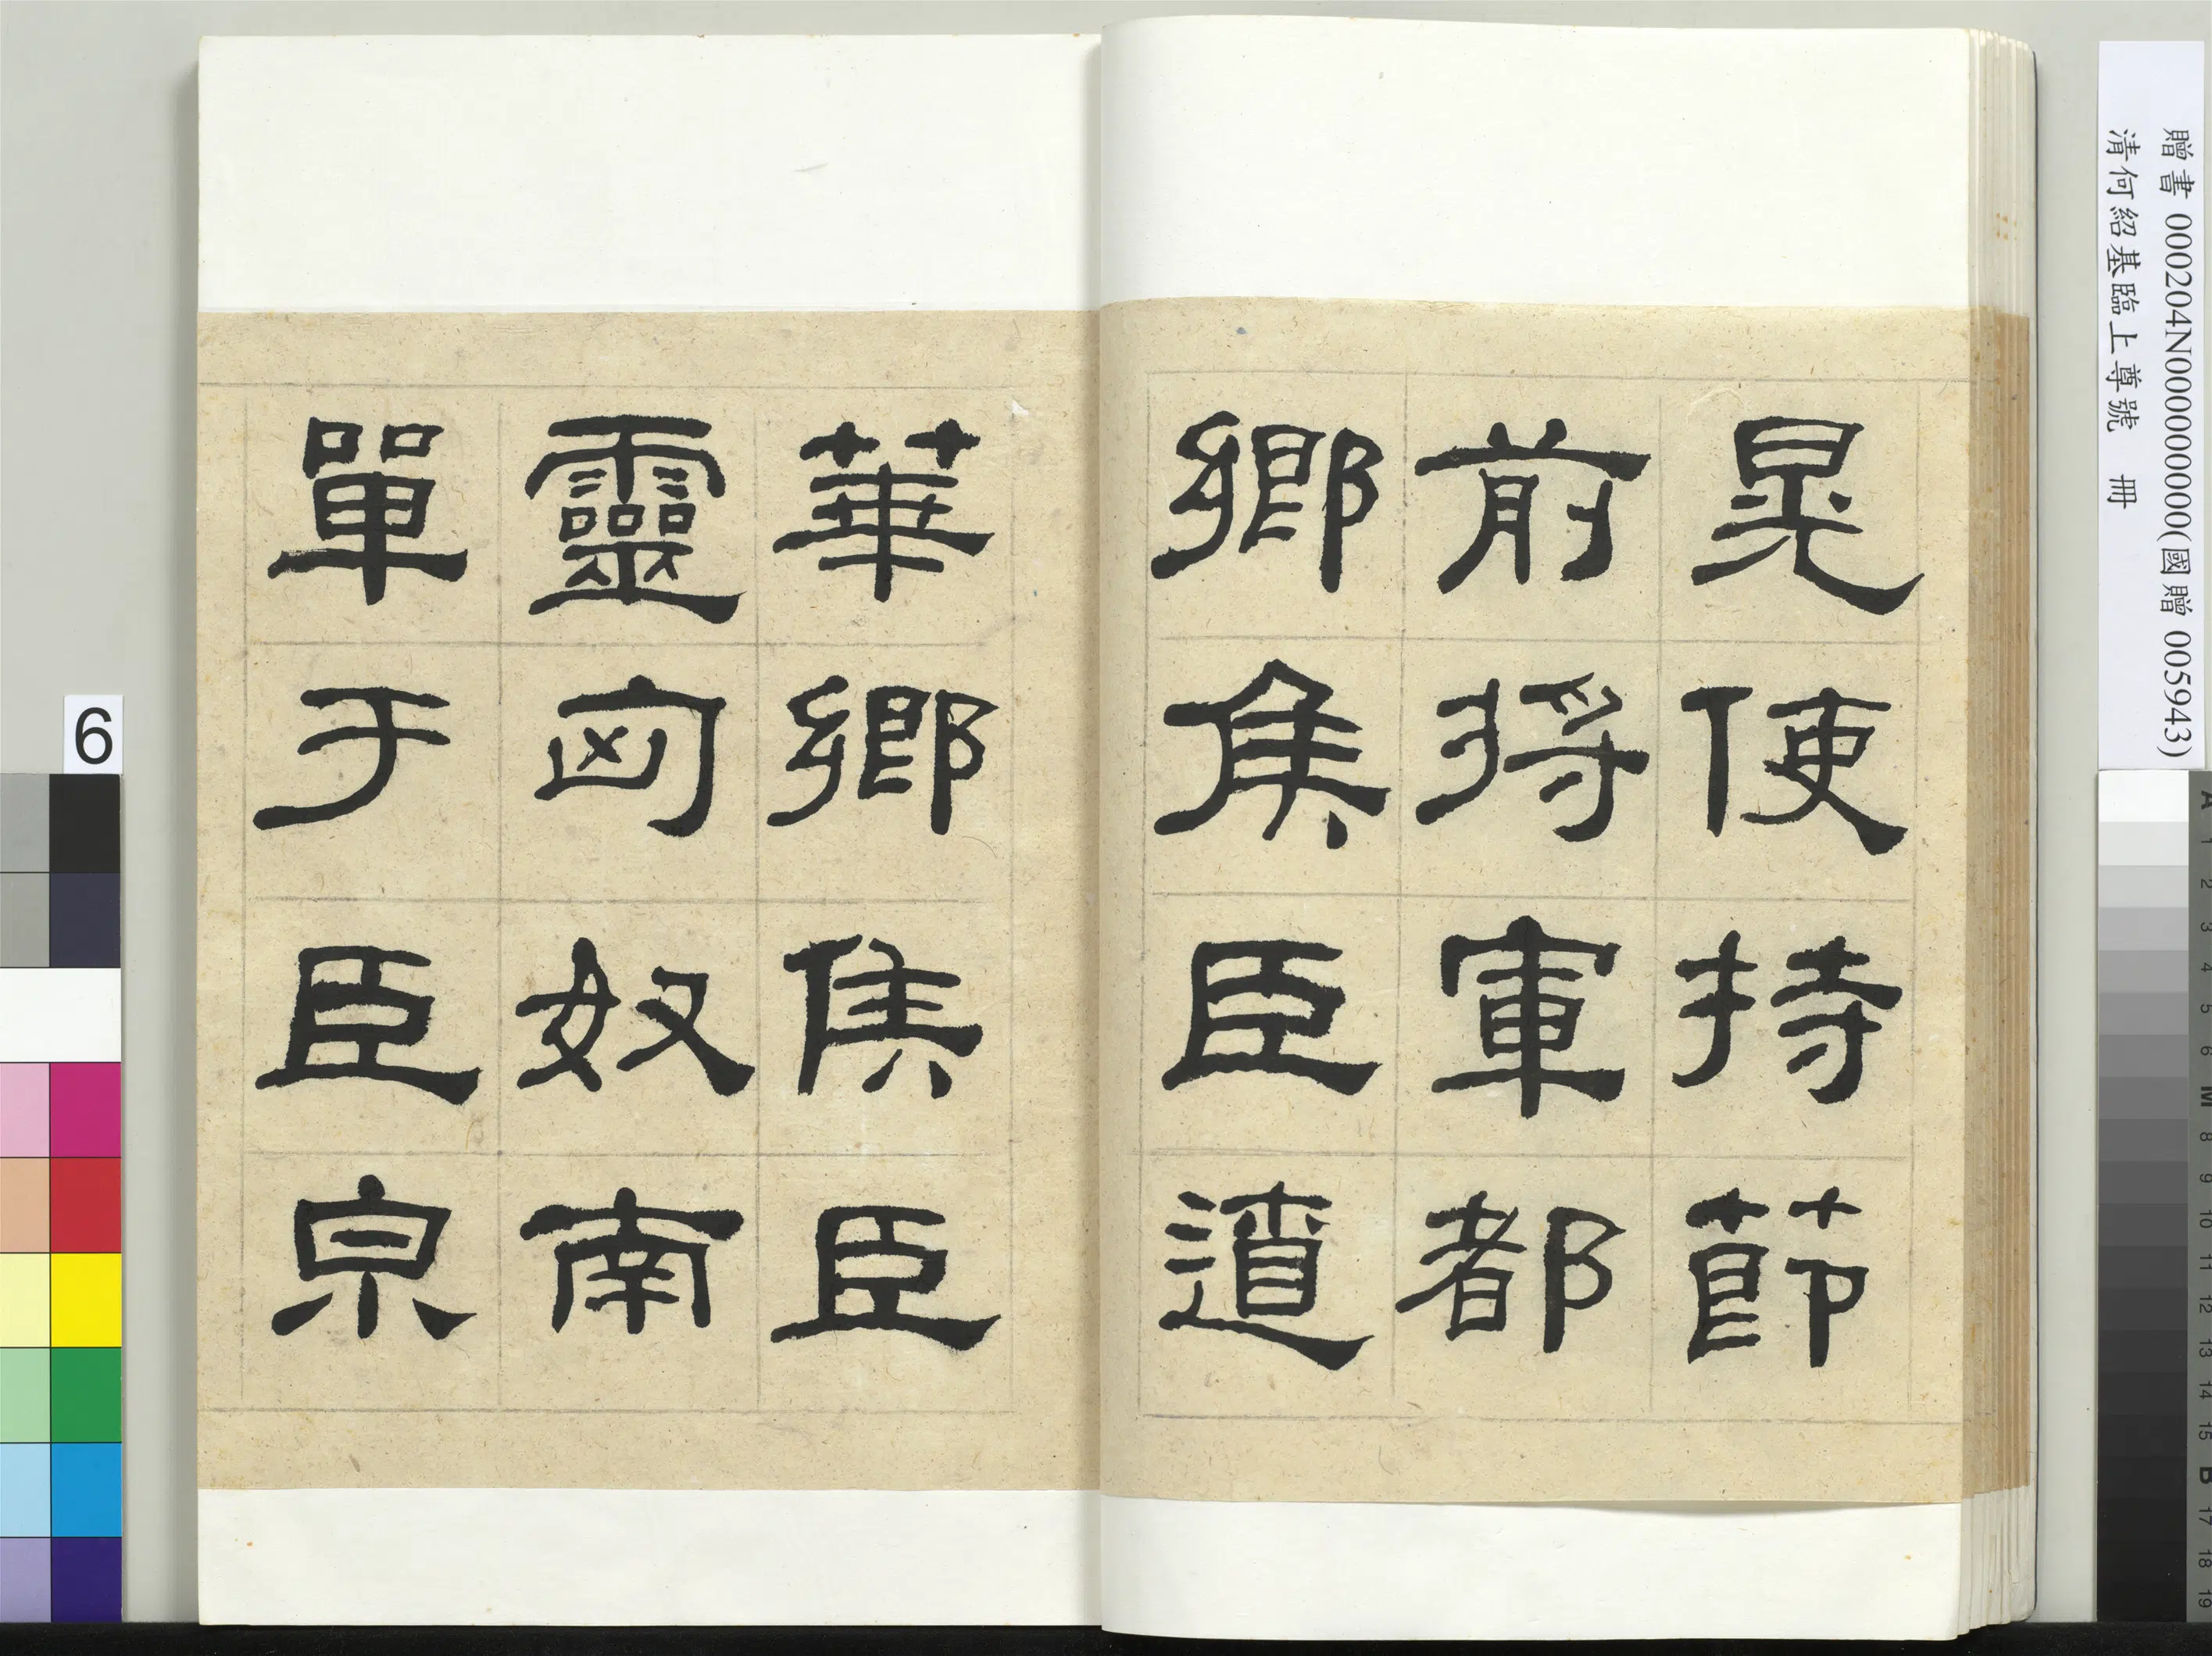 晃使持節
前將軍都
鄉侯臣遼
華鄉侯臣
靈匈奴南
單于臣泉
贈書 000204N000000000(國贈 005943)
清何紹基臨上尊號 冊
6
A 1 2 3 4 5 6 M 8 9 10 11 12 13 14 15 B 17 18 19